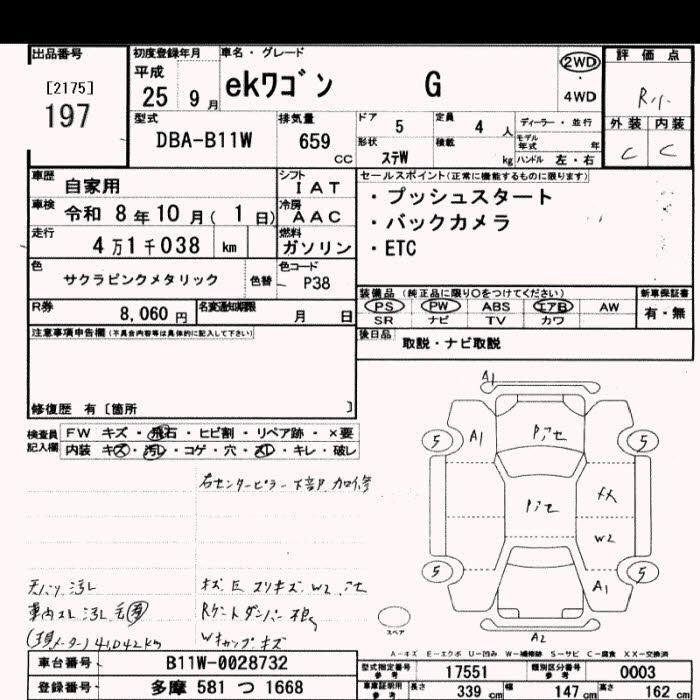 出品番号 初度登録年月 車名・グレード 評価点
[2175] 平成 ekワゴン G 2WD
197 25 9月 4WD
型式 排気量 ドア 5 定員 4人 ディーラー・並行 外装 内装
DBA-B11W 659 cc 形状 ステW 積載 kg モデル年式 年 ハンドル 左・右 C C
車歴 自家用 シフト IAT セールスポイント(正常に機能するものに限ります)
車検 令和 8年10月(1日) 冷房 AAC ・プッシュスタート
走行 4万1千038 km 燃料 ガソリン ・バックカメラ
・ETC
色 サクラピンクメタリック 色替 色コード P38
装備品(純正品に限り○をつけてください) 新車保証書
R券 8,060円 名変通知期限 月 日 PS PW ABS エアB AW 有・無
SR ナビ TV カワ
注意事項申告欄(不具合内容等は具体的に記入して下さい) 後日品 取説・ナビ取説
修復歴 有〔箇所 〕
検査員記入欄 FW キズ・飛石・ヒビ割・リペア跡・×要
内装 キズ・汚レ・コゲ・穴・スレ・キレ・破レ
右センターピラー下部 加修
A1
5 A1 5
XX
W2
5 A1 5
A2
スペア
(現メーター) 41,042km
A-キズ E-エクボ U-凹み W-補修跡 S-サビ C-腐食 XX-交換済
車台番号 B11W-0028732 型式指定番号 参考 17551 類別区分番号 参考 0003
登録番号 多摩 581 つ 1668 車庫証明用 参考 長さ 339 cm 幅 147 cm 高さ 162 cm